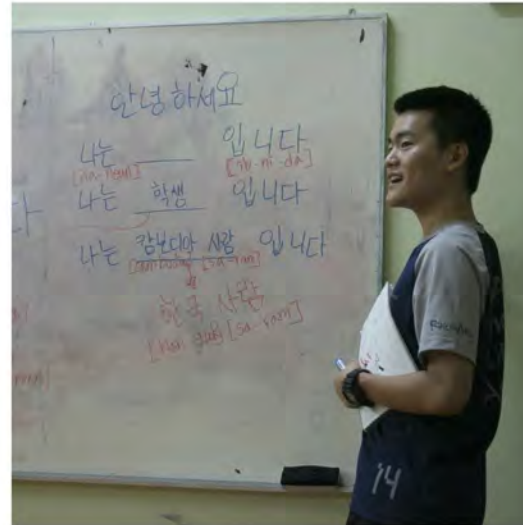 안녕하세요
나는 ____ 입니다
[na-neun] [im-ni-da]
나는 학생 입니다
나는 캄보디아 사람 입니다
[sa-ram]
한국 사람
[sa-ram]
14